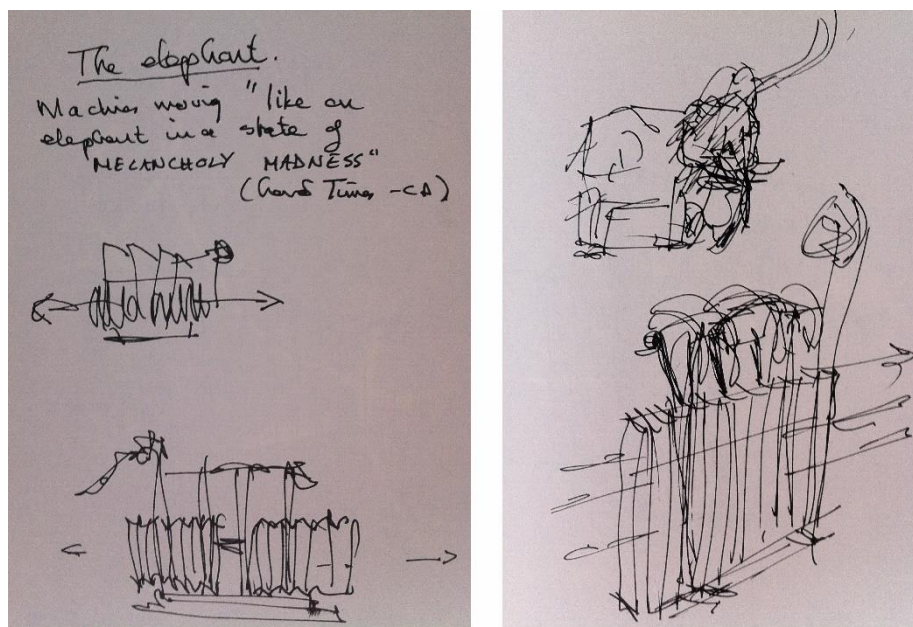 The elephant.
Machines moving "like an
elephant in a state of
MELANCHOLY MADNESS"
(Hard Times - CD)